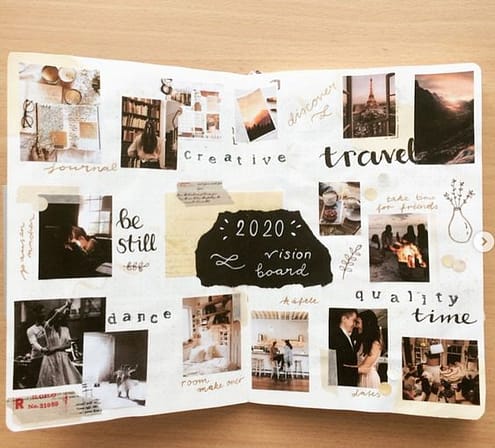 journal
&
Creative
be
still
dance
R
No. 31059
room
make over
2020
vision
board
discover
travel
take time
for friends
quality
time
dates